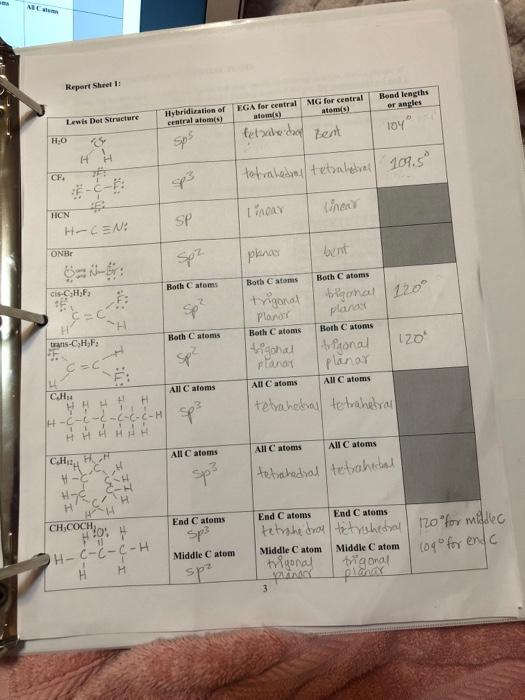 All C atoms
Report Sheet 1:
Lewis Dot Structure
Hybridization of central atom(s)
EGA for central atom(s)
MG for central atom(s)
Bond lengths or angles
H₂O
H H
sp3
tetrahedral
Bent
104°
CF₄
:F:
:F-C-F:
:F:
sp3
tetrahedral
tetrahedral
109.5°
HCN
H-C≡N:
sp
linear
linear
ONBr
:O=N-Br:
sp2
planar
bent
cis-C₂H₂F₂
:F: F:
C=C
H H
Both C atoms
sp2
Both C atoms
trigonal
planar
Both C atoms
trigonal
planar
120°
trans-C₂H₂F₂
:F H
C=C
H F:
Both C atoms
sp2
Both C atoms
trigonal
planar
Both C atoms
trigonal
planar
120°
C₆H₁₄
H H H H H
H-C-C-C-C-C-C-H
H H H H H H
All C atoms
sp3
All C atoms
tetrahedral
All C atoms
tetrahedral
C₆H₁₂
All C atoms
sp3
All C atoms
tetrahedral
All C atoms
tetrahedral
CH₃COCH₃
H :O: H
H-C-C-C-H
H H
End C atoms
sp3
Middle C atom
sp2
End C atoms
tetrahedral
Middle C atom
trigonal
planar
End C atoms
tetrahedral
Middle C atom
trigonal
planar
120° for middle C
109° for end C
3